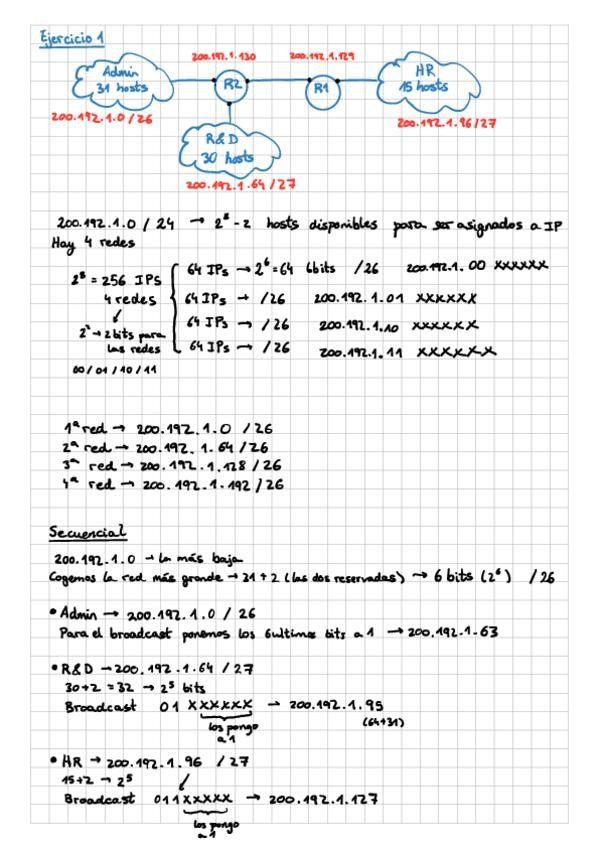 Ejercicio 1
200.192.1.130 200.192.1.129
Admin R2 R1 HR
31 hosts 15 hosts
200.192.1.0 / 26 200.192.1.96/27
R&D
30 hosts
200.192.1.64 / 27
200.192.1.0 / 24 → 2⁸ - 2 hosts disponibles para ser asignados a IP
Hay 4 redes
2⁸ = 256 IPs
4 redes
2² → 2 bits para
las redes
00 / 01 / 10 / 11
64 IPs → 2⁶ = 64 6bits /26 200.192.1. 00 xxxxxx
64 IPs → /26 200.192.1.01 xxxxxx
64 IPs → /26 200.192.1.10 xxxxxx
64 IPs → /26 200.192.1.11 xxxxxx
1ª red → 200.192.1.0 /26
2ª red → 200.192.1.64 /26
3ª red → 200.192.1.128 /26
4ª red → 200.192.1.192 / 26
Secuencial
200.192.1.0 → la más baja
Cogemos la red más grande → 31 + 2 (las dos reservadas) → 6 bits (2⁶) /26
• Admin → 200.192.1.0 / 26
Para el broadcast ponemos los 6 ultimos bits a 1 → 200.192.1.63
• R&D → 200.192.1.64 / 27
30+2 = 32 → 2⁵ bits
Broadcast 01 xxxxxx → 200.192.1.95
los pongo (64+31)
a 1
• HR → 200.192.1.96 /27
15+2 → 2⁵
Broadcast 011xxxxx → 200.192.1.127
los pongo
a 1